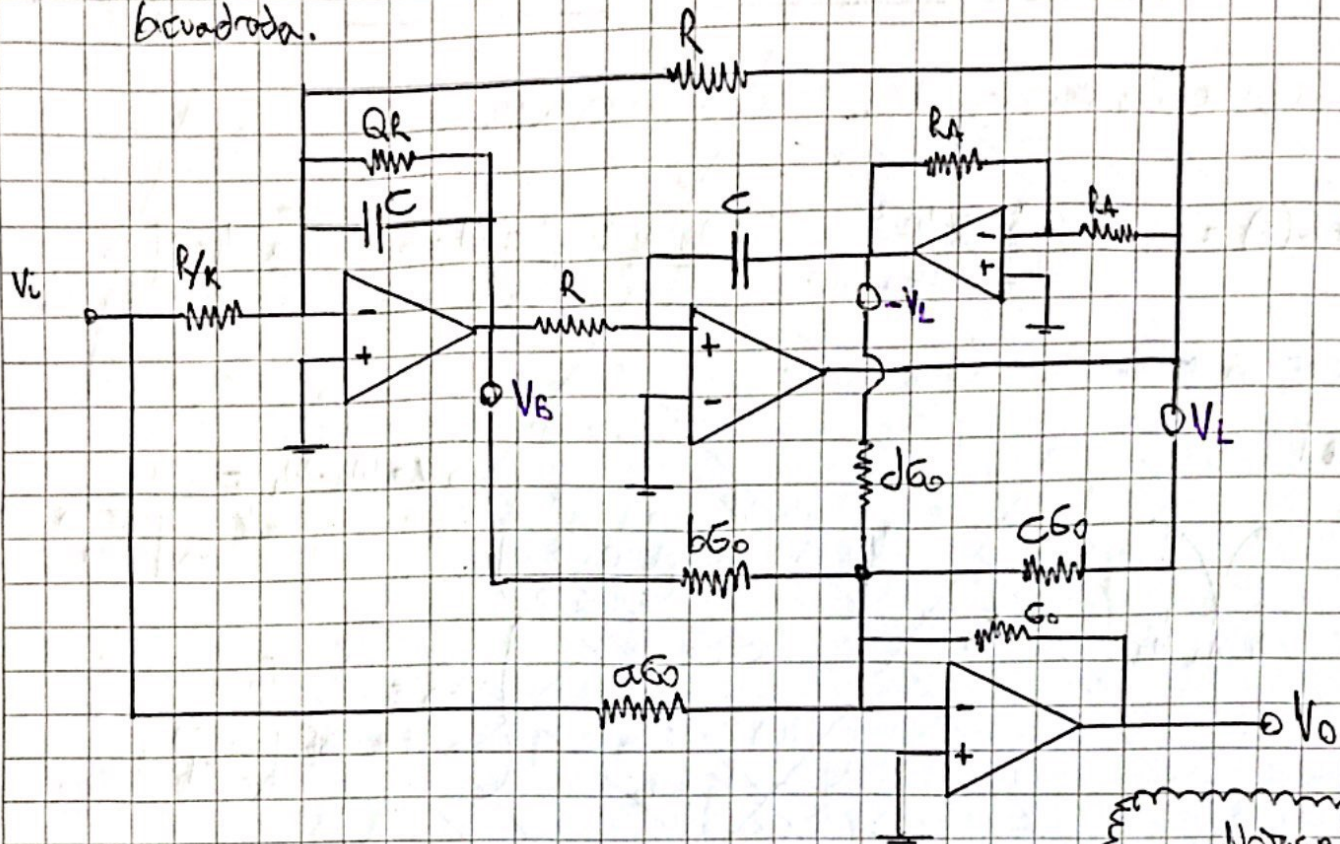 bcuadrada.
R
QR
RA
C
C
RA
Vi
R/K
R
-
+
+
-
-
+
-VL
VB
VL
dG₀
bG₀
cG₀
G₀
aG₀
-
+
V₀